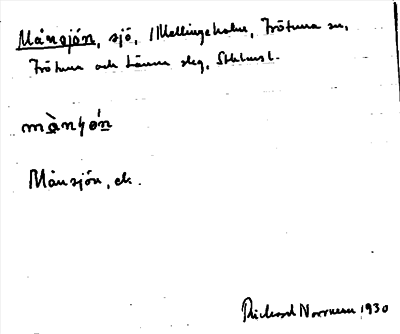 Månsjön, sjö, i Mellingeholm, Frötuna sn,
Frötuna och Länna skg, Sthlms l.
mànʃǿn
Månsjön, ek.
Richard Norrman 1930